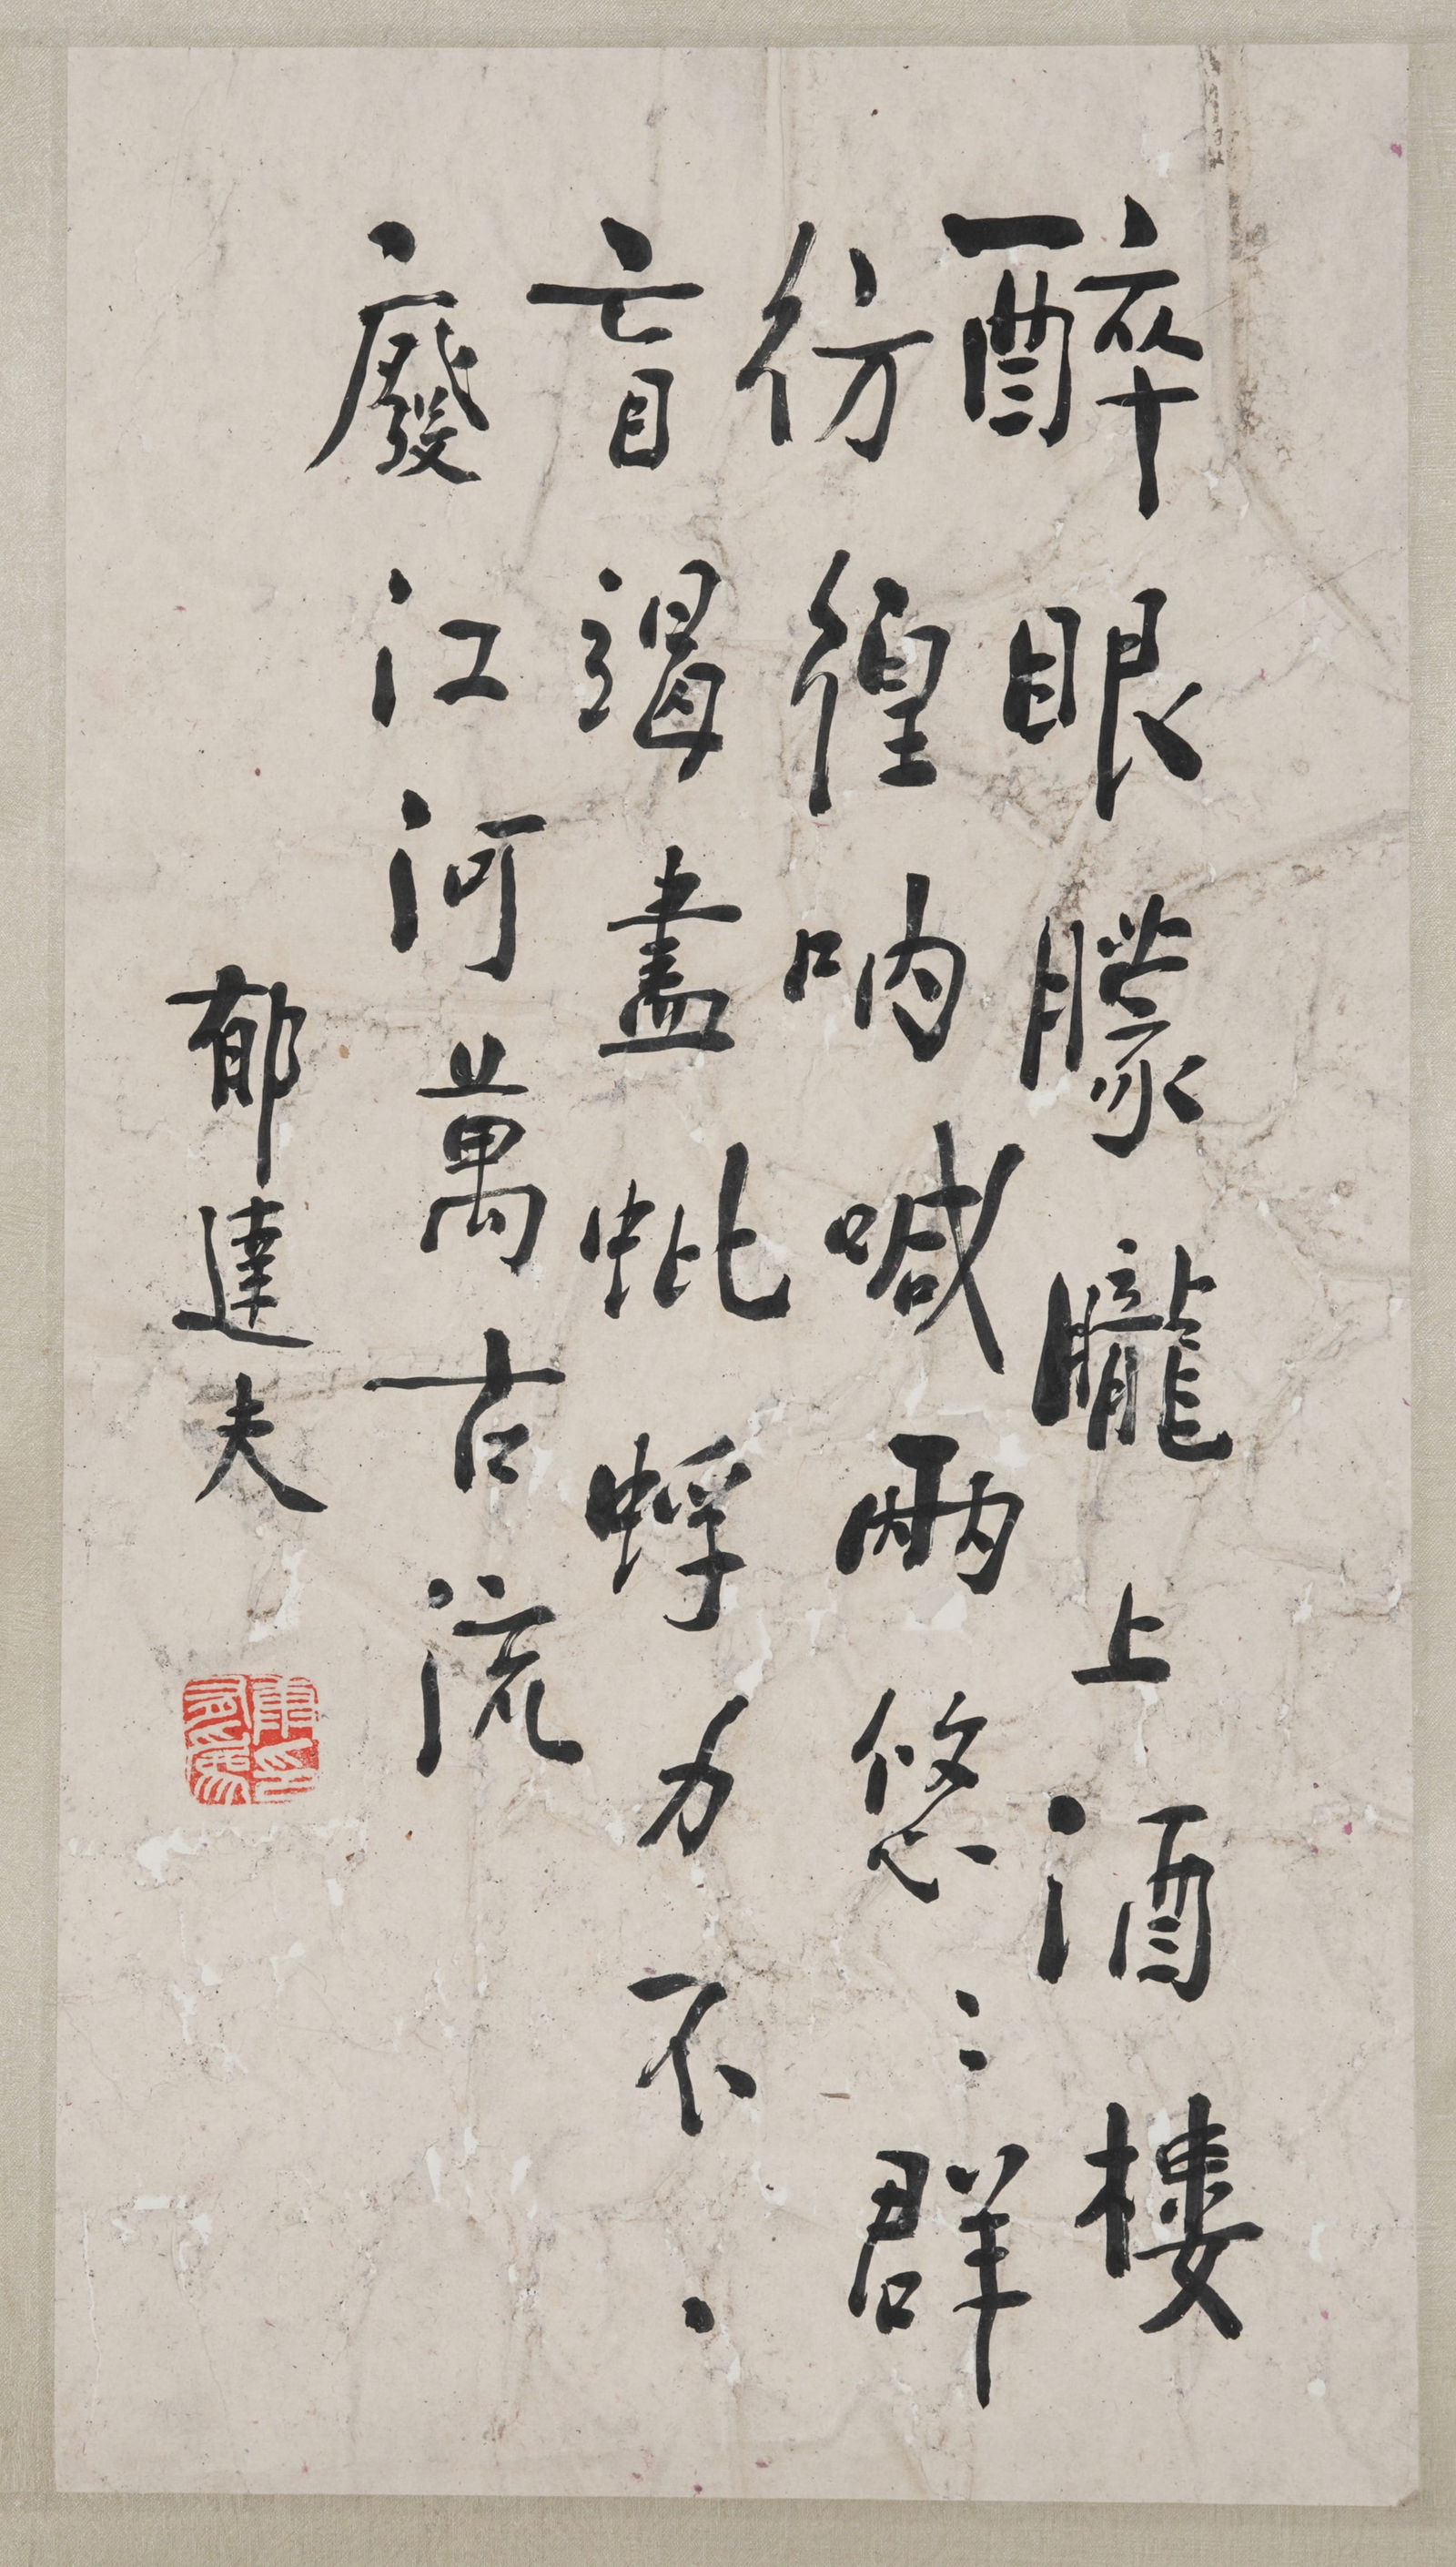 醉眼朦朧上酒樓
彷徨吶喊兩悠々群
盲竭盡蚍蜉力不
廢江河萬古流
郁達夫